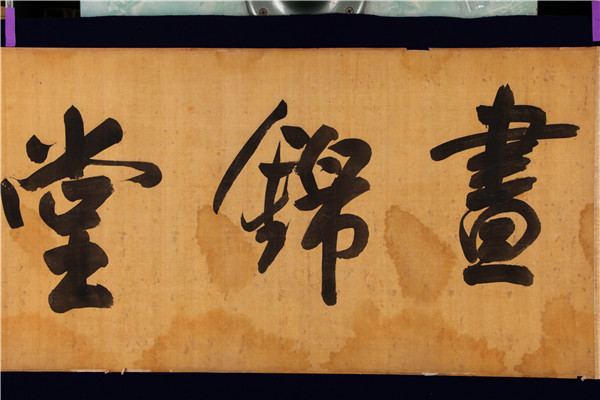 晝錦堂